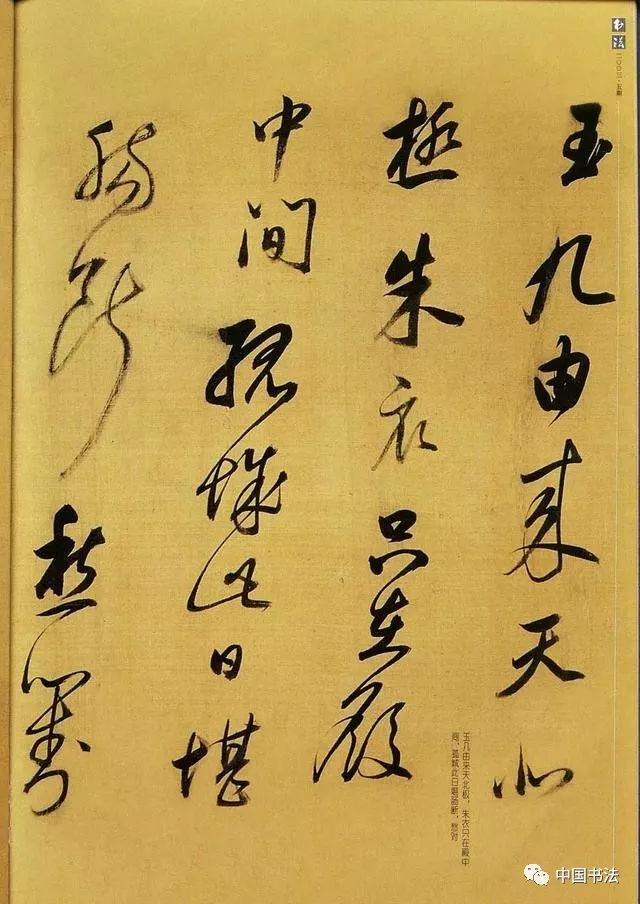 玉几由来天北
极朱衣只在殿
中间孤城此日堪
肠断愁对
书法
二〇〇三·五期
玉几由来天北极，朱衣只在殿中
间。孤城此日堪肠断，愁对
中国书法